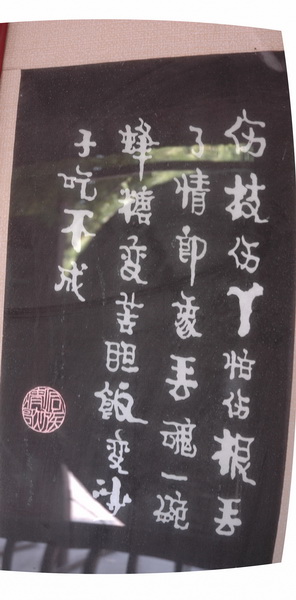 伤枝伤丫怕伤根丢
了情郎象丢魂一碗
蜂糖变苦胆饭变沙
子吃不成